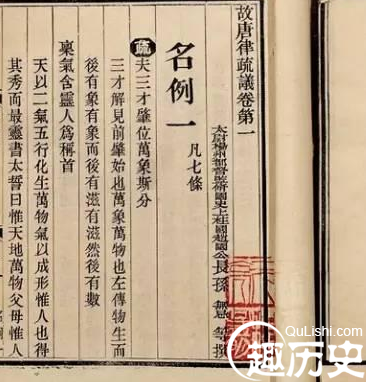 故唐律疏議卷第一
太尉揚州都督監修國史上柱國趙國公長孫無忌等撰
名例一
凡七條
疏夫三才肇位萬象斯分
三才解見前肇始也萬象萬物也左傳物生而
後有象有象而後有滋滋然後有數
稟氣含靈人爲稱首
天以二氣五行化生萬物氣以成形惟人也得
其秀而最靈書太誓曰惟天地萬物父母惟人
QuLishi.com
趣历史